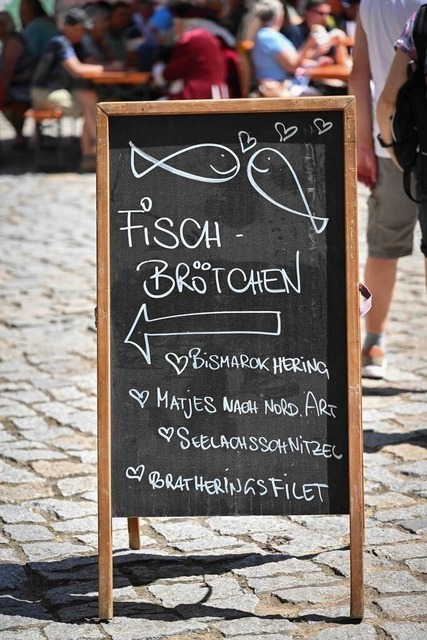 FISCH-
BRÖTCHEN
BISMARCKHERING
MATJES NACH NORD. ART
SEELACHSSCHNITZEL
BRATHERINGSFILET